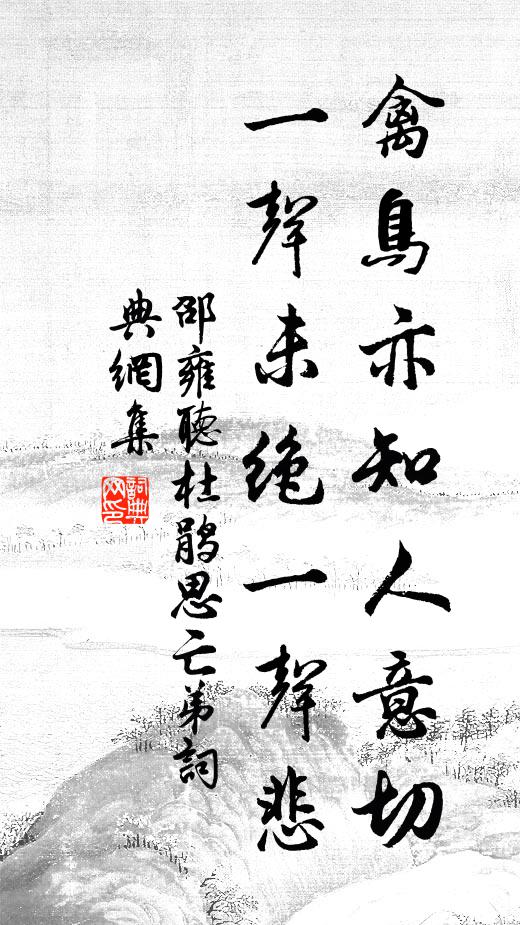 禽鳥亦知人意切
一聲未絶一聲悲
邵雍聽杜鵑思亡弟詞
典網集
詞典網印